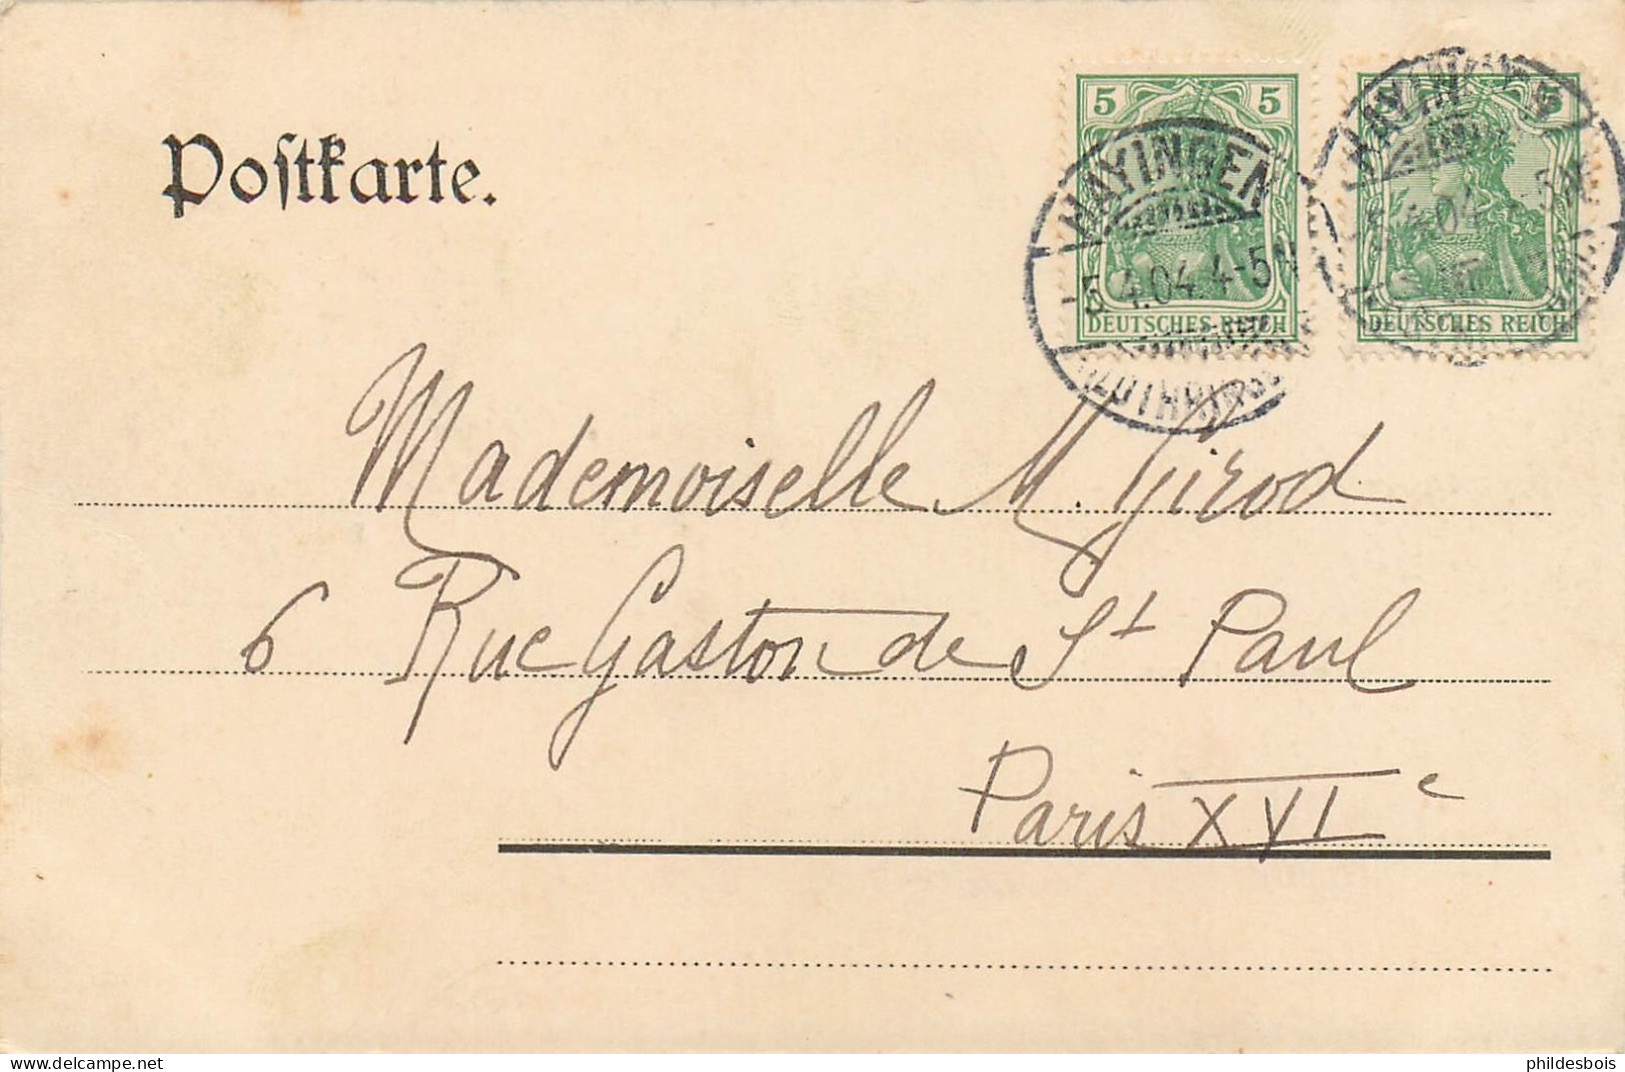 Postkarte.
5 5
HAYINGEN
5.4.04. 4-5N
DEUTSCHES REICH
(LOTHRINGEN)
5
HAYINGEN
DEUTSCHES REICH
Mademoiselle M. Girod
6 Rue Gaston de St Paul
Paris XVIe
delcampe.net
phildesbois